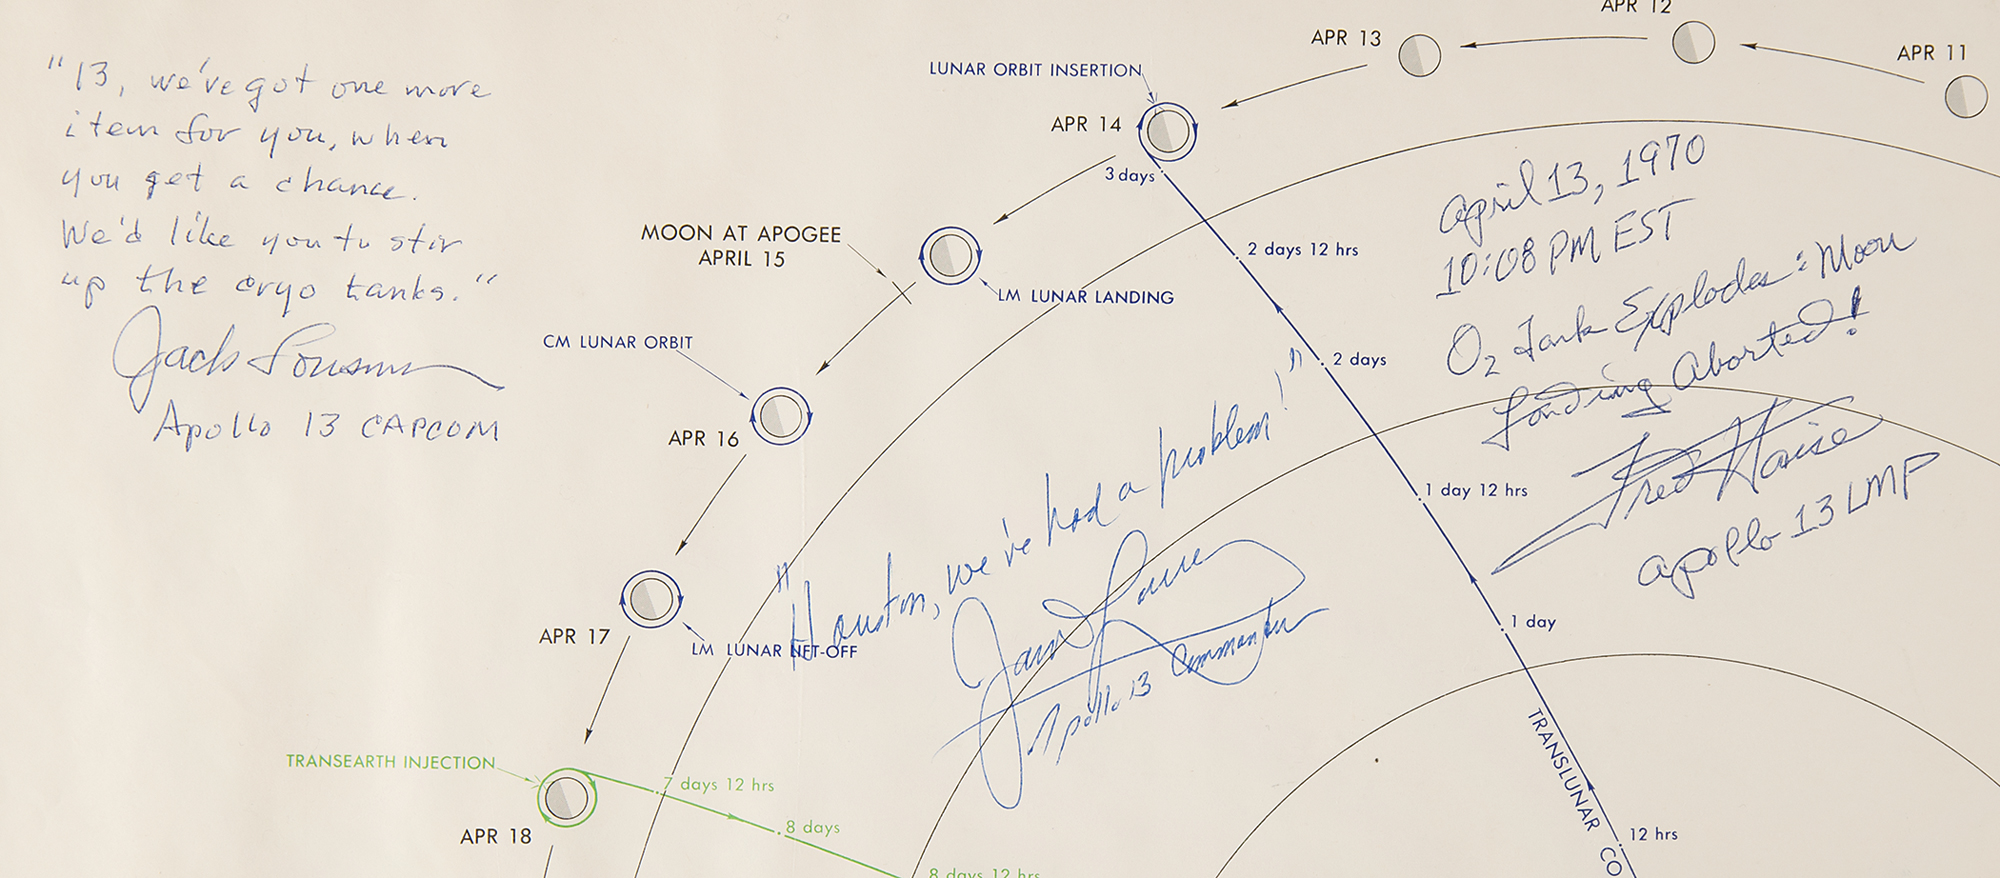 "13, we've got one more
item for you, when
you get a chance.
We'd like you to stir
up the cryo tanks."
Jack Lousma
Apollo 13 CAPCOM
APR 11
APR 12
APR 13
LUNAR ORBIT INSERTION
APR 14
3 days
MOON AT APOGEE
APRIL 15
LM LUNAR LANDING
CM LUNAR ORBIT
APR 16
APR 17
LM LUNAR LIFT-OFF
TRANSEARTH INJECTION
APR 18
7 days 12 hrs
8 days
8 days 12 hrs
2 days 12 hrs
2 days
1 day 12 hrs
1 day
12 hrs
TRANSLUNAR CO
"Houston, we've had a problem!"
James Lovell
Apollo 13 Commander
April 13, 1970
10:08 PM EST
O2 Tank Explodes: Moon
Landing Aborted!
Fred Haise
Apollo 13 LMP